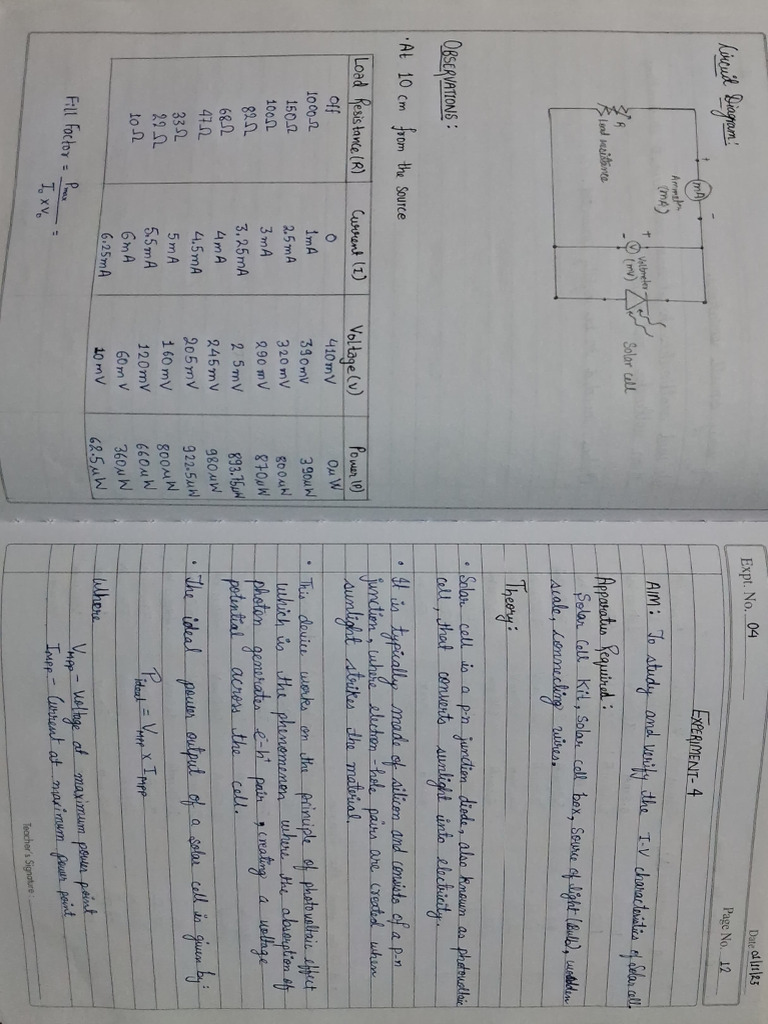 Circuit Diagram:
mA
Ammeter
(mA)
+
-
R
load resistance
+
-
V
Voltmeter
(mV)
Solar cell
OBSERVATIONS:
• At 10 cm from the source
Load Resistance (R) Current (I) Voltage (V) Power (P)
Off 0 410mV 0uW
1000Ω 1mA 390mV 390uW
150Ω 2.5mA 320mV 800uW
100Ω 3mA 290mV 870uW
82Ω 3.25mA 2 5mV 893.75uW
68Ω 4mA 245mV 980uW
47Ω 4.5mA 205mV 922.5uW
33Ω 5mA 160mV 800uW
22Ω 5.5mA 120mV 660uW
10Ω 6mA 60mV 360uW
6.25mA 10mV 62.5uW
Fill Factor = Pmax / I₀ x V₀ =
Expt. No. 04
Date
Page No. 12
EXPERIMENT-4
AIM: To study and verify the I-V characteristics of Solar cell.
Apparatus Required:
Solar Cell Kit, Solar cell box, Source of light (Bulb), wooden
scale, connecting wires.
Theory:
• Solar cell is a p-n junction diode, also known as photovoltaic
cell, that converts sunlight into electricity.
• It is typically made of silicon and consists of a p-n
junction, where electron-hole pairs are created when
sunlight strikes the material.
• This device works on the principle of photovoltaic effect
which is the phenomenon where the absorption of
photon generates e⁻-h⁺ pair, creating a voltage
potential across the cell.
• The ideal power output of a solar cell is given by:
Pideal = VMPP x IMPP
Where
VMPP - Voltage at maximum power point
IMPP - Current at maximum power point
Teacher's Signature :